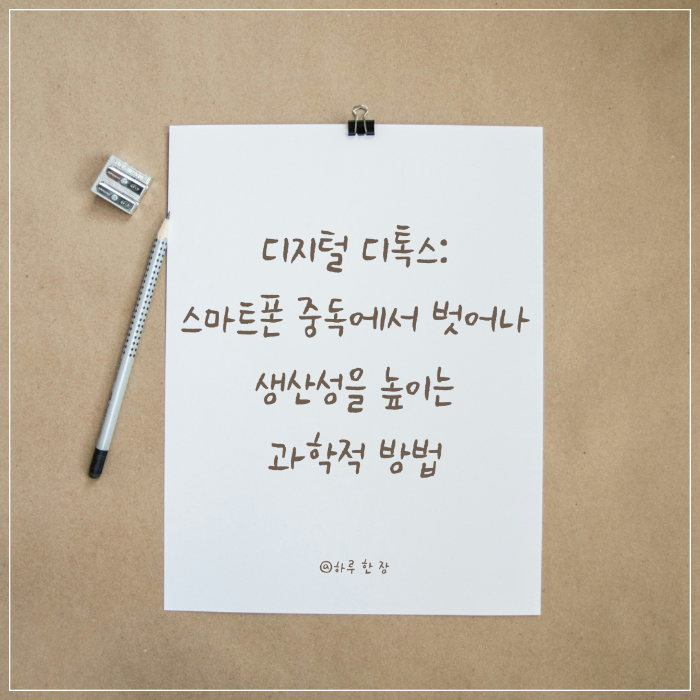 디지털 디톡스:
스마트폰 중독에서 벗어나
생산성을 높이는
과학적 방법
@하루 한 장